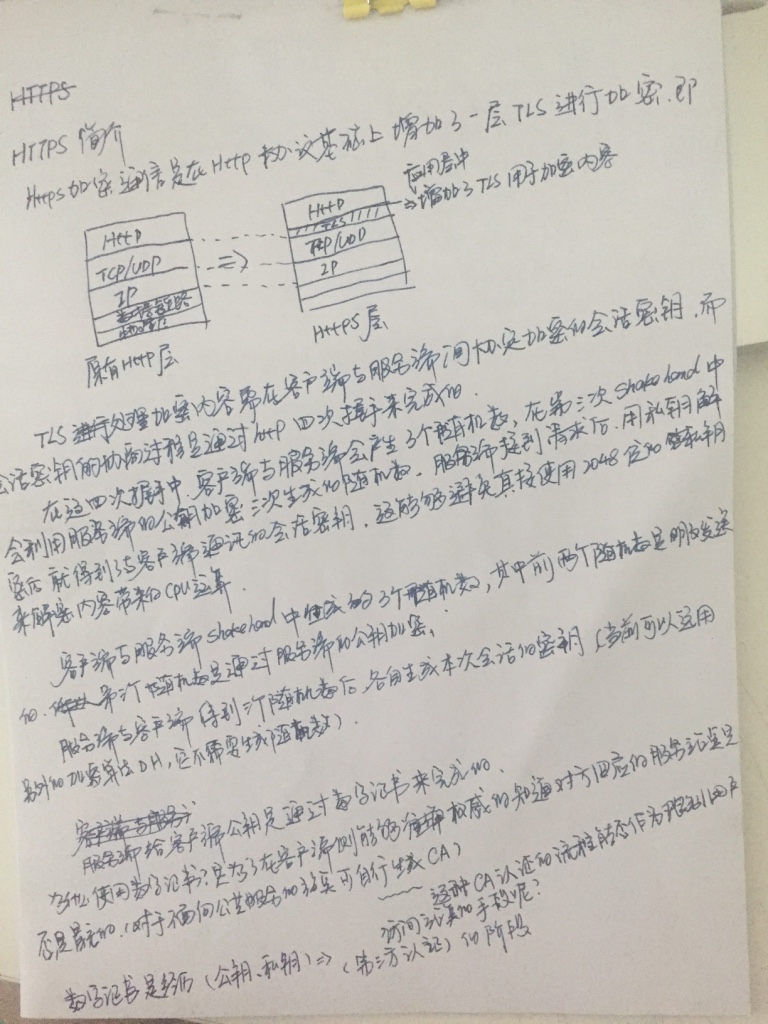 HTTPS
HTTPS 简介
Https加密通信是在Http协议基础上增加了一层TLS进行加密.即
应用层中
Http
Http
TLS
⇒增加了TLS用于加密内容
TCP/UDP
⇒
TCP/UDP
IP
IP
数据链路
物理层
原有Http层
HTTPS层
TLS进行处理加密内容需在客户端与服务端间协定加密的会话密钥.而
会话密钥的协商过程是通过http四次握手来完成的.
在这四次握手中,客户端与服务端会产生3个随机数,在第三次Shakehand中
会利用服务端的公钥加密三次生成的随机数.服务端接到请求后.用私钥解
密后就得到了与客户端通讯的会话密钥,这能够避免直接使用2048位的私钥
来解密内容带来的CPU运算.
客户端与服务端shakehand中生成的3个随机数,其中前两个随机数是明文发送
的.第三个随机数是通过服务端的公钥加密.
服务端与客户端得到三个随机数后,各自生成本次会话的密钥(当前可以运用
另外的加密算法DH,还不需要生成随机数).
客户端与服务
服务端给客户端公钥是通过数字证书来完成的.
为什么使用数字证书?是为了在客户端侧能够准确权威的知道对方回应的服务证是
否是真的.(对于不面向公共服务的场景可自行生成CA)
这种CA认证的流程能否作为
访问 的手段呢?
数字证书是经历(公钥、私钥)⇒(第三方认证)的阶段